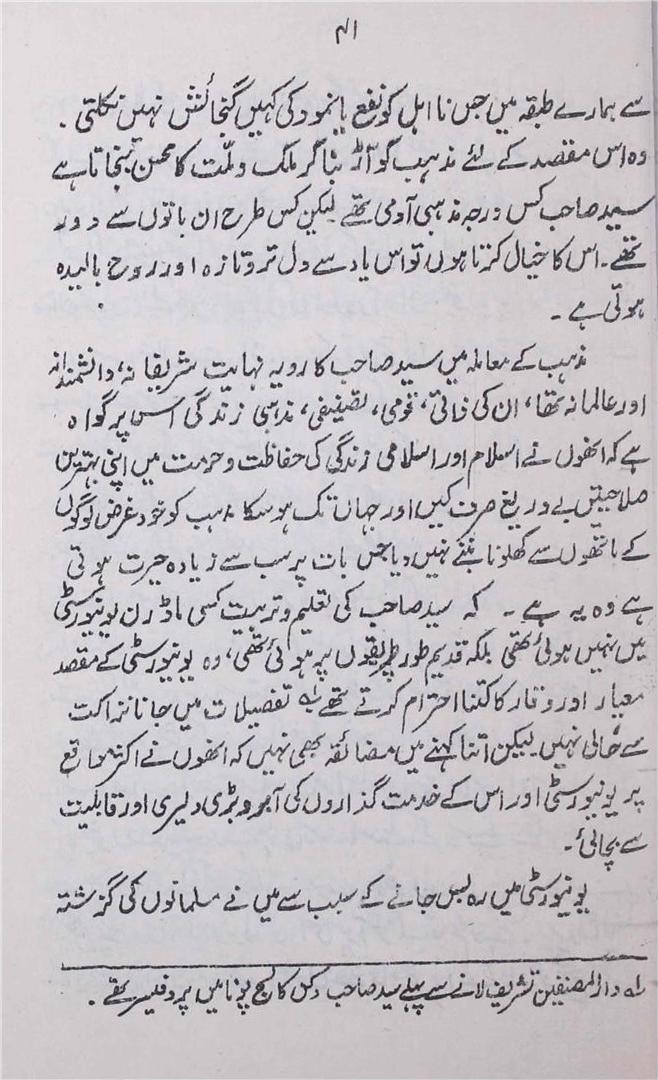 ۴۱
سے ہمارے طبقہ میں جس نا اہل کو نفع یا نمود کی کہیں گنجائش نہیں نکلتی .
وہ اس مقصد کے لئے مذہب گو آڑ بنا گر ملک و ملّت کا محسن بنجاتا ہے
سید صاحب کس درجہ مذہبی آدمی تھے لیکن کس طرح ان باتوں سے دور
تھے ۔ اس کا خیال کرتا ہوں تو اس یاد سے دل تر و تازہ اور روح بالیدہ
ہوتی ہے ۔
مذہب کے معاملہ میں سید صاحب کا رویہ نہایت شریفانہ ، دانشمندانہ
اور عالمانہ تھا ، ان کی ذاتی ، قومی ، تصنیفی ، مذہبی زندگی اس پر گواہ
ہے کہ انھوں نے اسلام اور اسلامی زندگی کی حفاظت و حرمت میں اپنی بہترین
صلاحیتیں بے دریغ صرف کیں اور جہاں تک ہو سکا مذہب کو خود غرض لوگوں
کے ہاتھوں سے کھلونا بننے نہیں دیا جس بات پر سب سے زیادہ حیرت ہوتی
ہے وہ یہ ہے ۔ کہ سید صاحب کی تعلیم و تربیت کسی ماڈرن یونیورسٹی
میں نہیں ہوئی تھی بلکہ قدیم طور طریقوں پر ہوئی تھی ، وہ یونیورسٹی کے مقصد
معیار اور وقار کا کتنا احترام کرتے تھے لہ تفصیلات میں جانا نزاکت
سے خالی نہیں ۔ لیکن اتنا کہنے میں مضائقہ بھی نہیں کہ انھوں نے اکثر مواقع
پر یونیورسٹی اور اس کے خدمت گذاروں کی آبرو بڑی دلیری اور قابلیت
سے بچائی ۔
یونیورسٹی میں رہ بس جانے کے سبب سے میں نے مسلمانوں کی گزشتہ
لہ دارالمصنفین تشریف لانے سے پہلے سید صاحب دکن کالج پونا میں پروفیسر تھے .